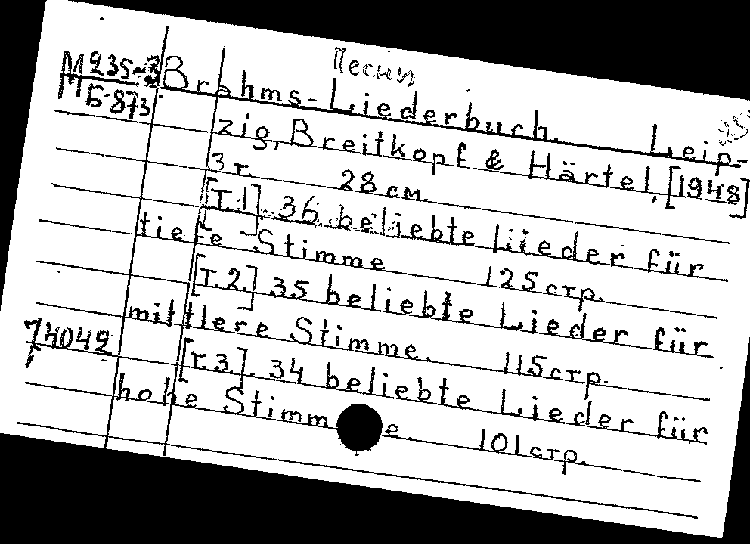 Песни
М235-3 Brahms-Liederbuch. Leip-
МБ-873 zig, Breitkopf & Härtel, [1948]
3 т. 28 см.
[Т.1]. 36 beliebte Lieder für
tiefe Stimme. 125 стр.
[т.2.] 35 beliebte Lieder für
mittlere Stimme. 115 стр.
74042
[т.3]. 34 beliebte Lieder für
hohe Stimme. 101 стр.